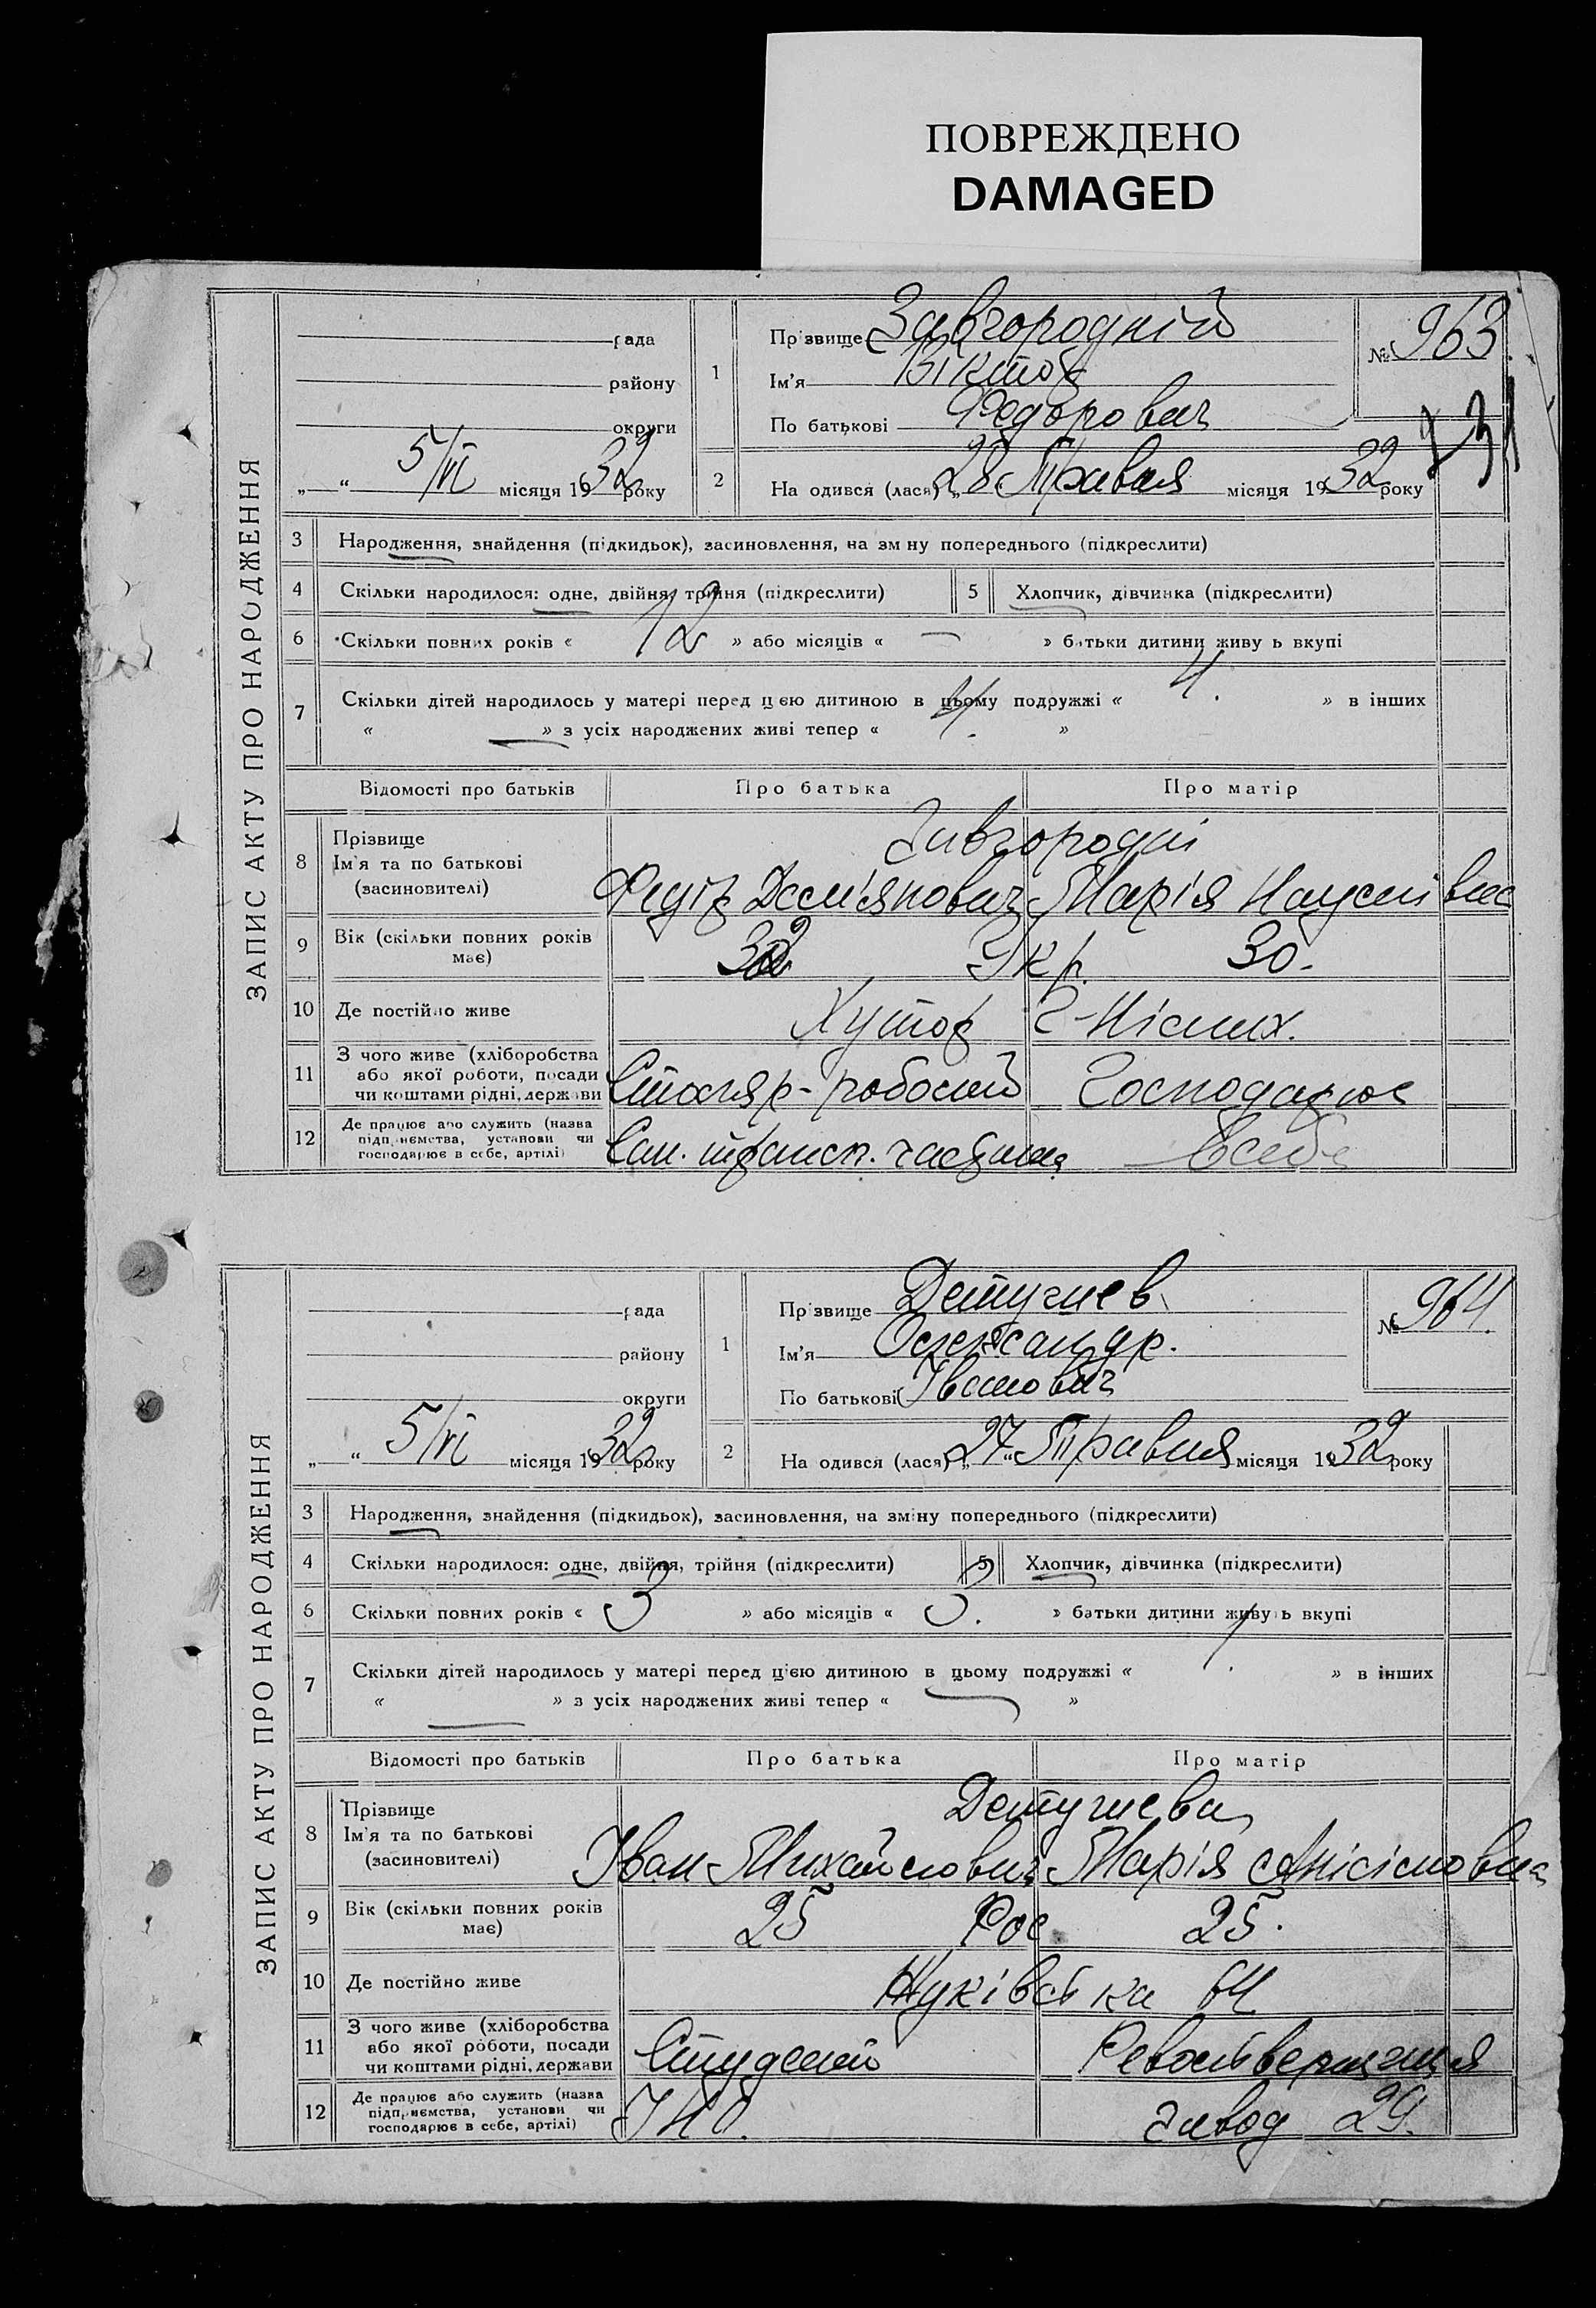 ПОВРЕЖДЕНО
DAMAGED
ЗАПИС АКТУ ПРО НАРОДЖЕННЯ
рада
району
округи
„ “ 5/VI місяця 1932 року
1
Прізвище Завгородній
Ім'я Віктор
По батькові Федорович
№ 963.
31
2
На одився (лася) „28 Травня місяця 1932 року
3 Народження, знайдення (підкидьок), засиновлення, на зм ну попереднього (підкреслити)
4 Скільки народилося: одне, двійня, трійня (підкреслити)
5 Хлопчик, дівчинка (підкреслити)
6 Скільки повних років « 12 » або місяців « — » батьки дитини живу ь вкупі
7 Скільки дітей народилось у матері перед цією дитиною в цьому подружжі « 4. » в інших
« — » з усіх народжених живі тепер « 4. »
Відомості про батьків Про батька Про матір
8 Прізвище
Ім'я та по батькові
(засиновителі)
Завгородні
Федір Дем'янович Марія
9 Вік (скільки повних років
має)
32 Укр. 30.
10 Де постійно живе
Хутор
11 З чого живе (хліборобства
або якої роботи, посади
чи коштами рідні, держави
Столяр-робочий Господарює
12 Де працює або служить (назва
підприємства, установи чи
господарює в себе, артілі)
Сан. трансп. частина вселе
ЗАПИС АКТУ ПРО НАРОДЖЕННЯ
рада
району
округи
„ “ 5/VI місяця 1932 року
1
Прізвище Детучиев
Ім'я Олександр.
По батькові Іванович
№ 964.
2
На одився (лася) „27 “ Травня місяця 1932 року
3 Народження, знайдення (підкидьок), засиновлення, на зміну попереднього (підкреслити)
4 Скільки народилося: одне, двійня, трійня (підкреслити)
5 Хлопчик, дівчинка (підкреслити)
6 Скільки повних років « 3 » або місяців « 3. » батьки дитини живу ь вкупі
7 Скільки дітей народилось у матері перед цією дитиною в цьому подружжі « 1. » в інших
« — » з усіх народжених живі тепер « — »
Відомості про батьків Про батька Про матір
8 Прізвище
Ім'я та по батькові
(засиновителі)
Детучиеви
Іван Михайлович Марія Анісімовна
9 Вік (скільки повних років
має)
25 Рос. 25.
10 Де постійно живе
Жуківська 64
11 З чого живе (хліборобства
або якої роботи, посади
чи коштами рідні, держави
Студент Револьверщиця
12 Де працює або служить (назва
підприємства, установи чи
господарює в себе, артілі)
ІНО. завод 29.